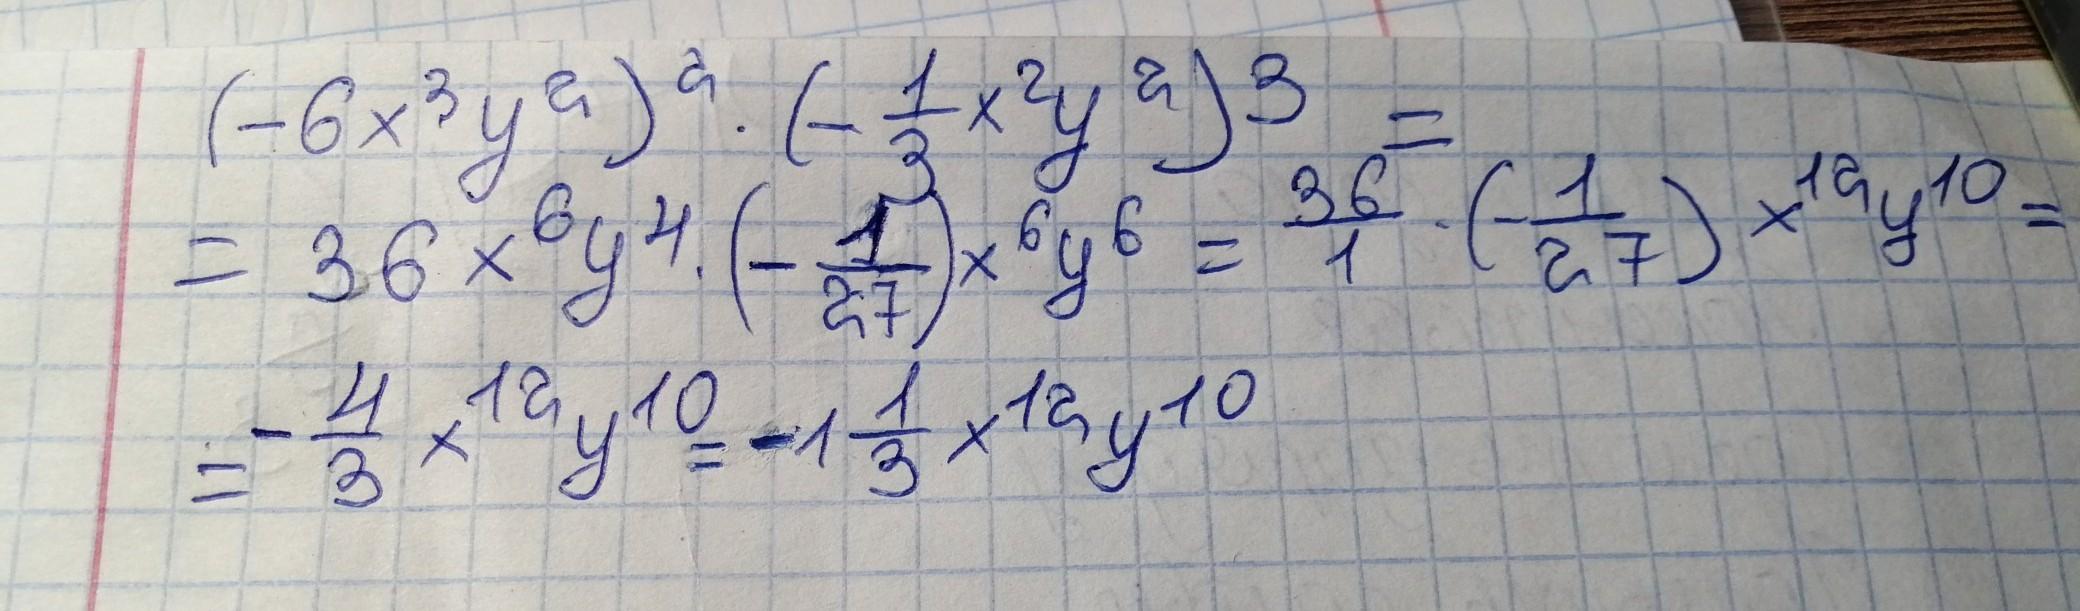 (-6x³y²)² · (-1/3x²y²)³ =
= 36x⁶y⁴ · (-1/27)x⁶y⁶ = 36/1 · (-1/27)x¹²y¹⁰ =
= -4/3x¹²y¹⁰ = -1 1/3x¹²y¹⁰